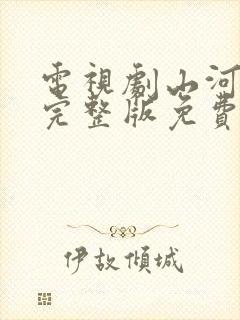 電視劇山河
完整版免費
伊故傾城